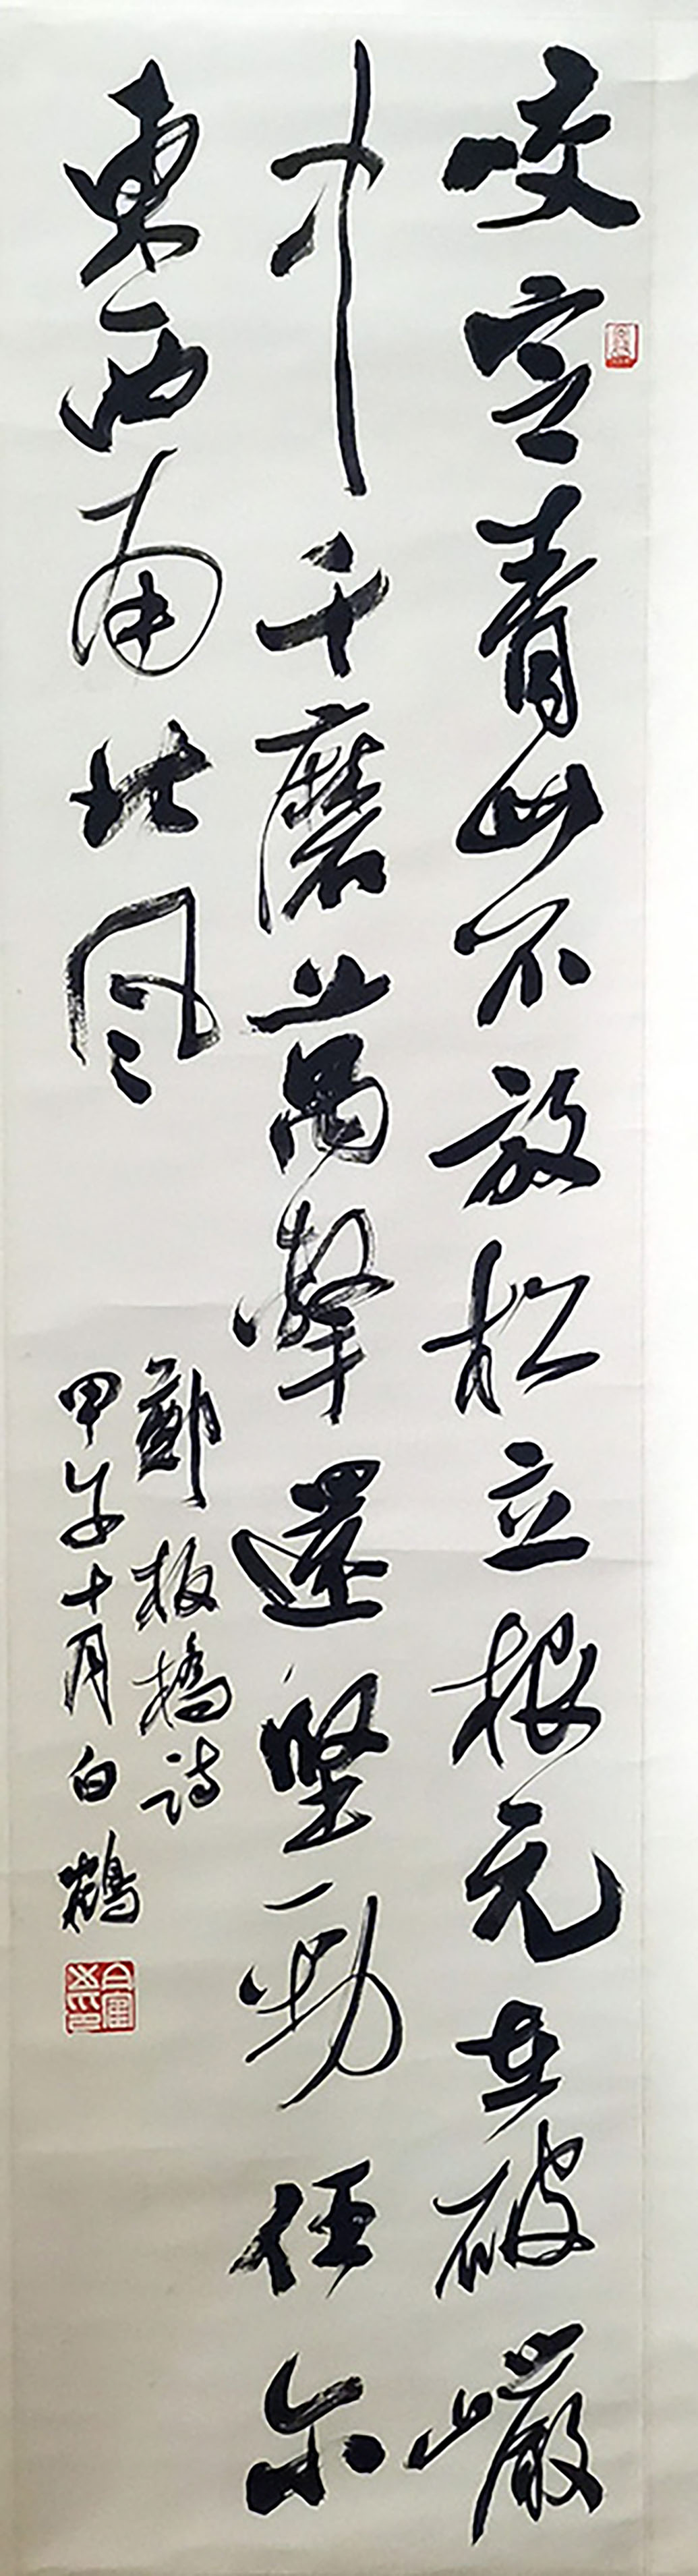 咬定青山不放松立根元在破巖
中千磨萬擊還堅勁任尔
東西南北風
鄭板橋詩
甲午十月白鶴